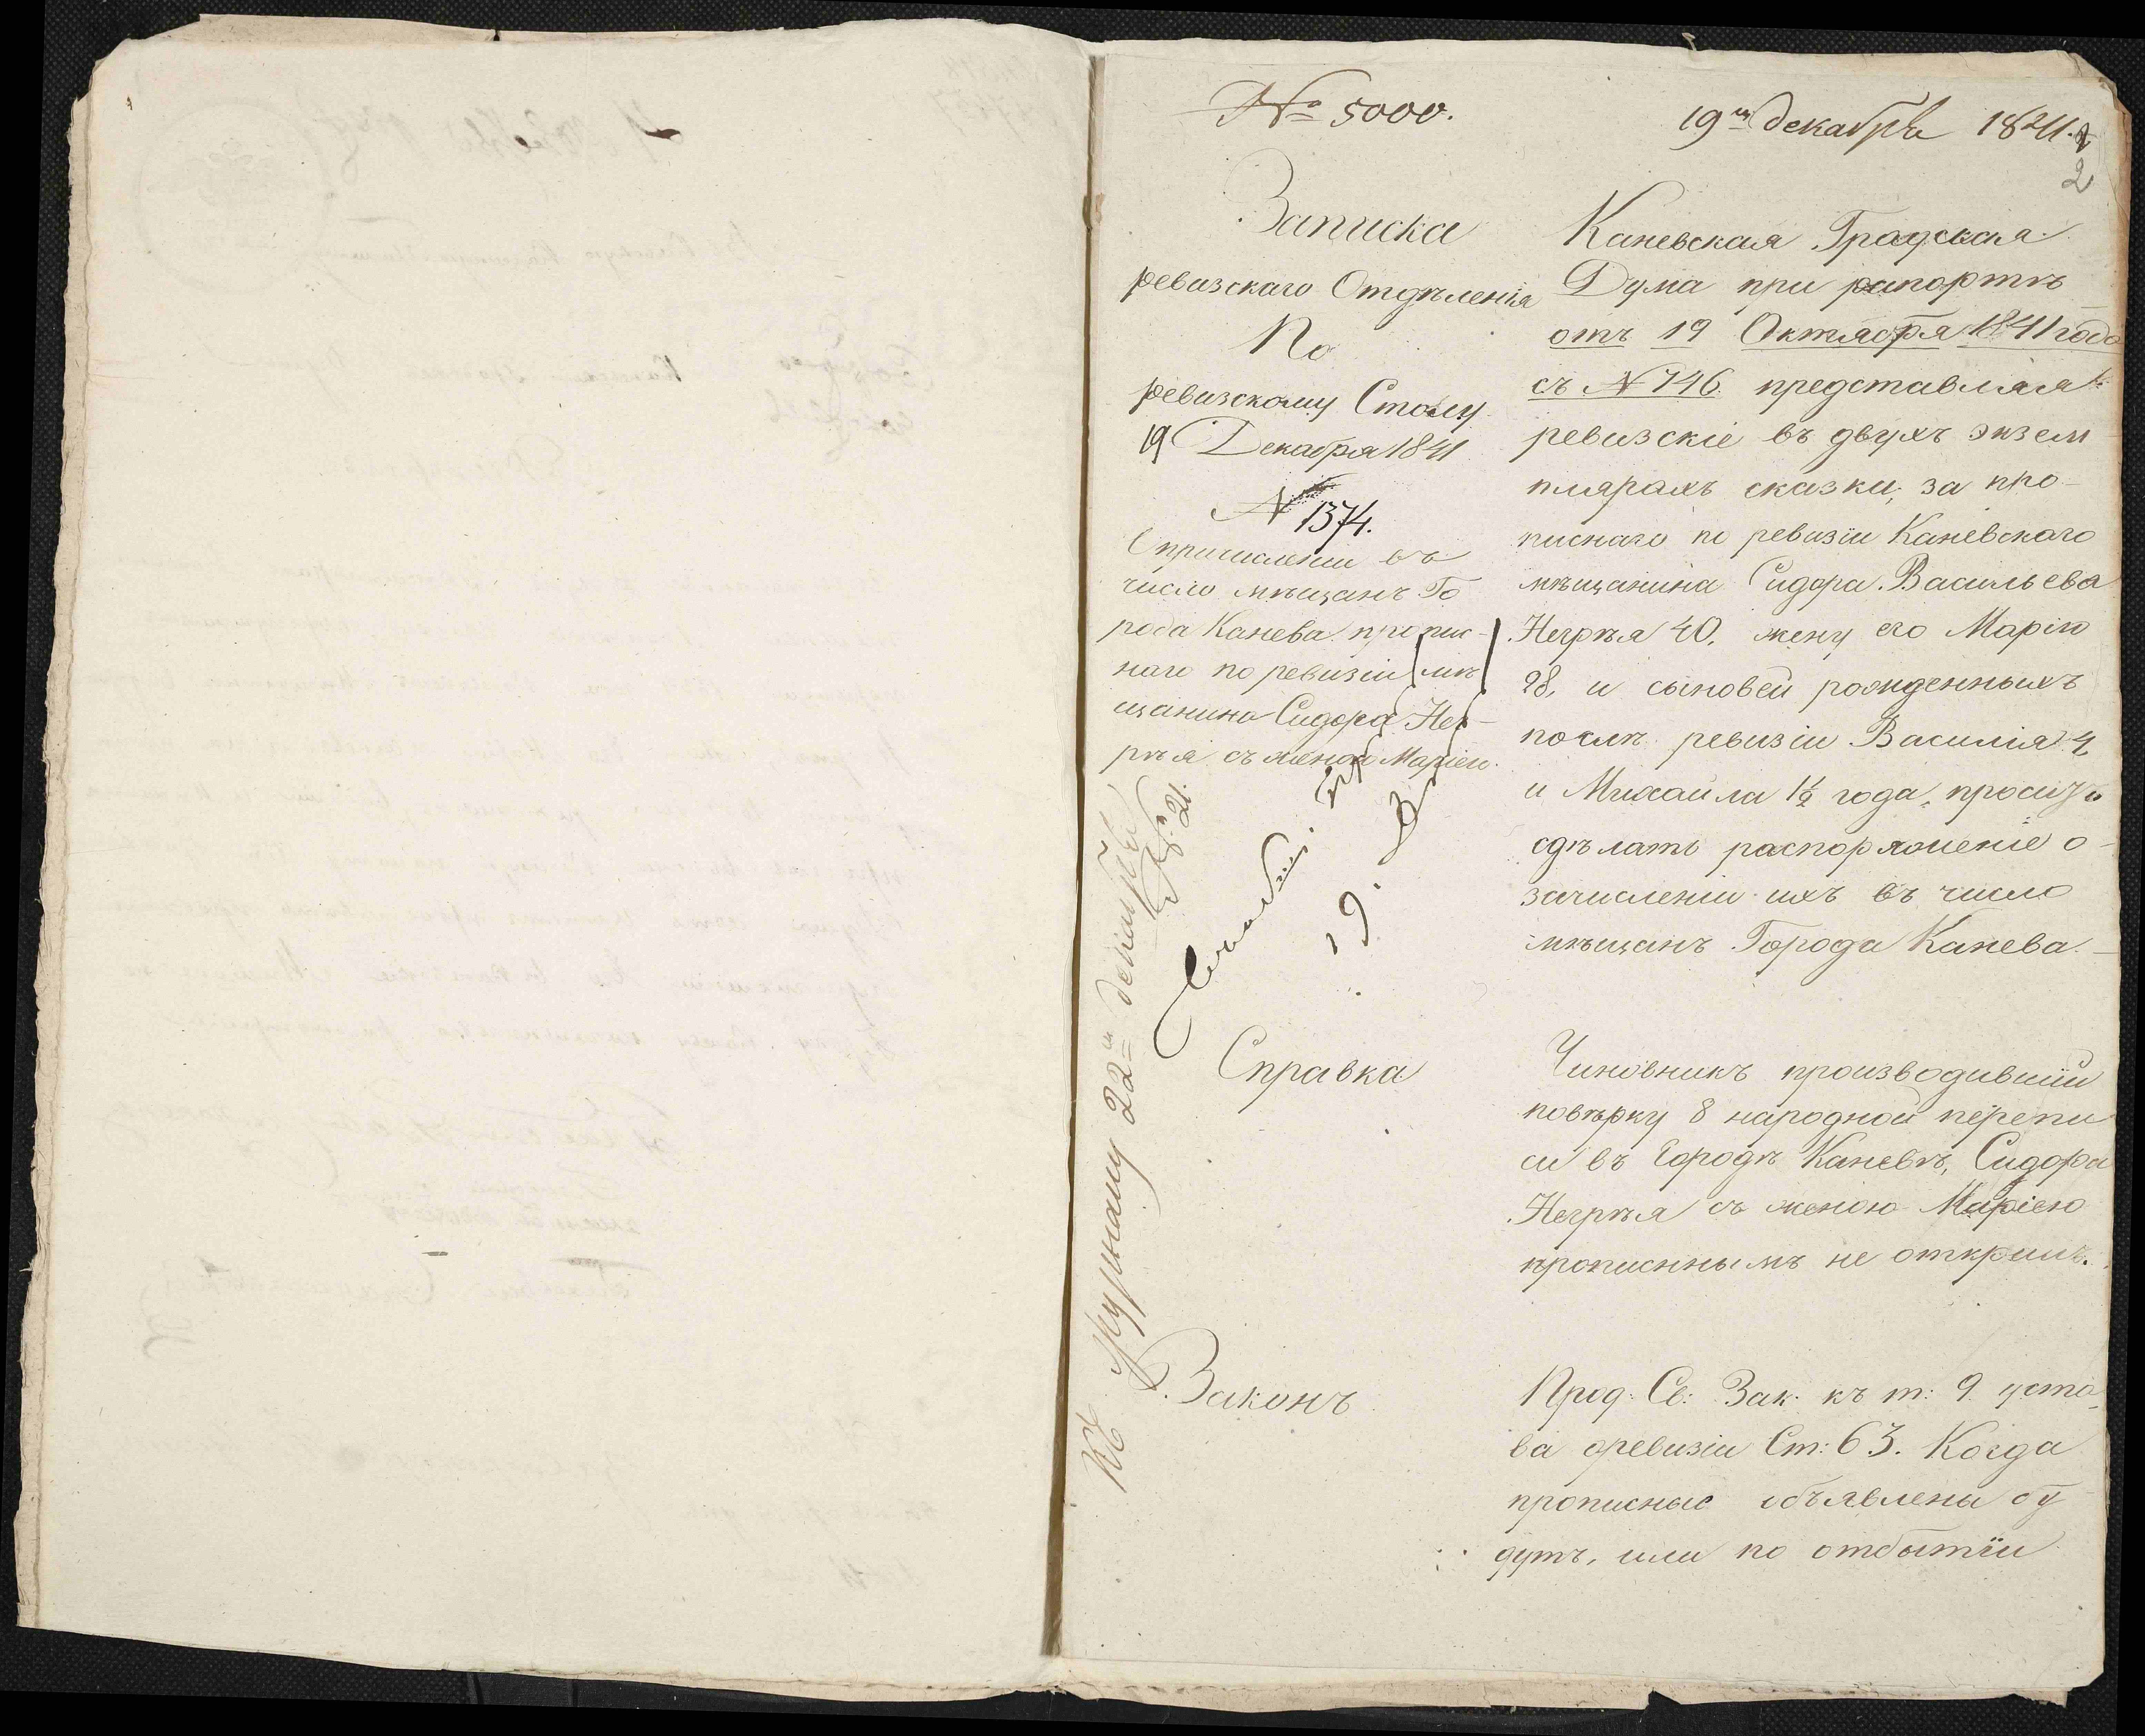 № 5000.
19го декабря 1841.
2
Записка
ревизскаго Отдѣленія
По
ревизскому Столу
19 Декабря 1841
N 1374.
О причисленіи въ
число мѣщанъ Го
рода Канева пропис-
наго по ревизіи мѣ
щанина Сидора Нег-
рѣя съ женою Маріею.
19.
Къ журналу 22го декабря
Справка
Законъ
Каневская Градская
Дума при рапортѣ
отъ 19 Октября 1841 года
съ N 746. представляя
ревизскіе въ двухъ экзем
плярахъ сказки, за про-
писнаго по ревизіи Каневскаго
мѣщанина Сидора Васильева
Негрѣя 40, жену его Марію
28, и сыновей рожденныхъ
послѣ ревизіи Василія 4
и Михаила 1½ года, проситъ
сдѣлать распоряженіе о-
зачисленіи ихъ въ число
мѣщанъ Города Канева.-
Чиновникъ производившій
повѣрку 8 народной перепи
си въ Городѣ Каневѣ, Сидора
Негрѣя съ женою Маріею
прописнымъ не открылъ.
Прод: Св: Зак: къ т: 9. уста-
ва оревизіи Ст: 63. Когда
прописные объявлены бу
дутъ, или по отбытіи